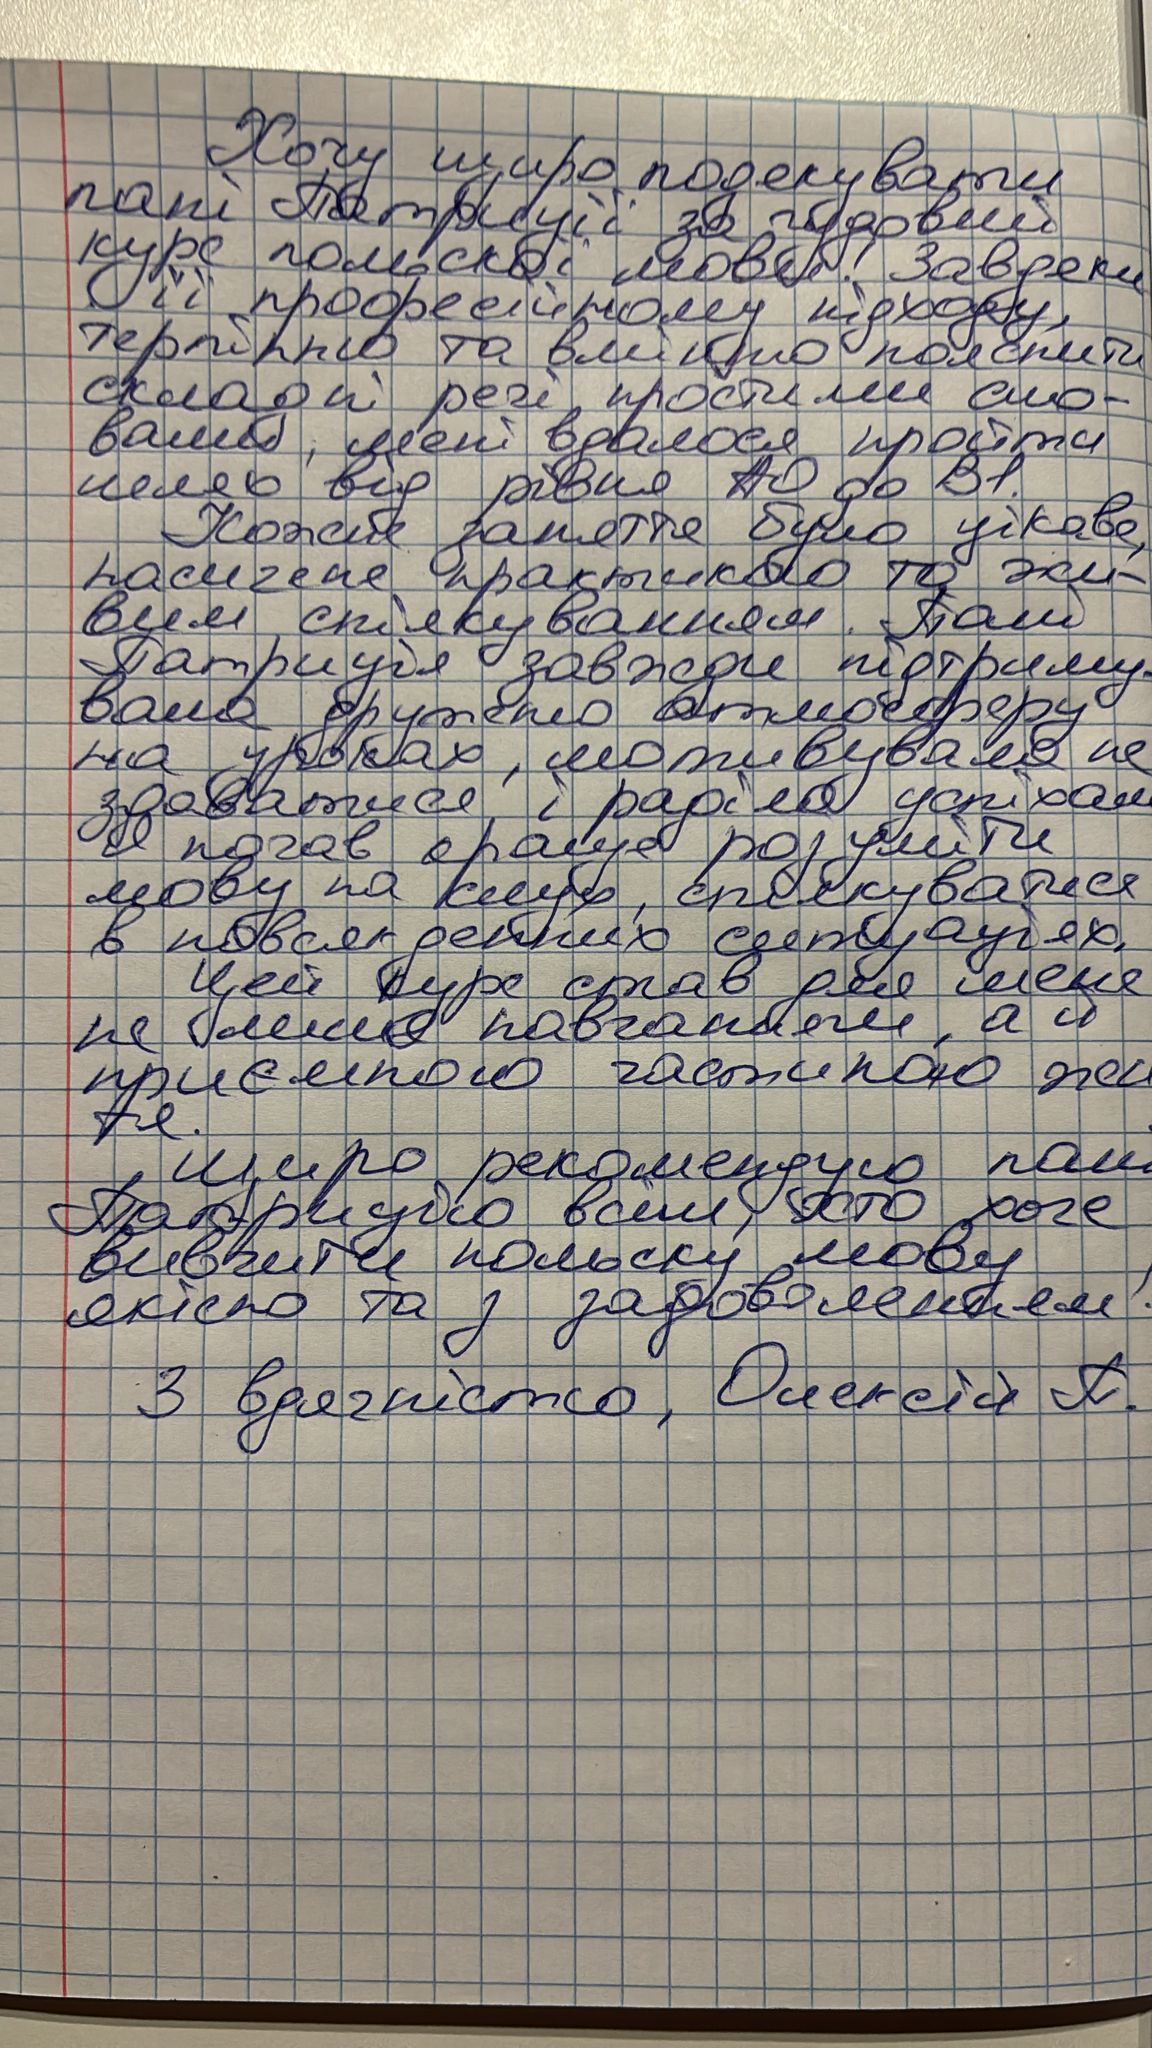 Хочу щиро подекувати
пані Патриції за чудовий
курс польскої мови! Завдеки
її професійному підходу,
терпінню та вмінню пояснити
складні речі простими сло-
вами, мені вдалося пройти
шлях від рівня А0 до В1.
Кожне заняття було цікаве,
насичене практикою та жи-
вим спілкуванням. Пані
Патриція завжди підтриму-
вала дружню атмосферу
на уроках, мотивувала не
здаватися і раділа успіхам
Я почав краще розуміти
мову на слух, спілкуватися
в повсякденних ситуаціях.
Цей курс став для мене
не лише навчанням, а й
приємною частиною жи
тя.
Щиро рекомендую пані
Патрицію всім, хто хоче
вивчити польску мову
якісно та з задоволенням!
З вдячністю, Олексій П.